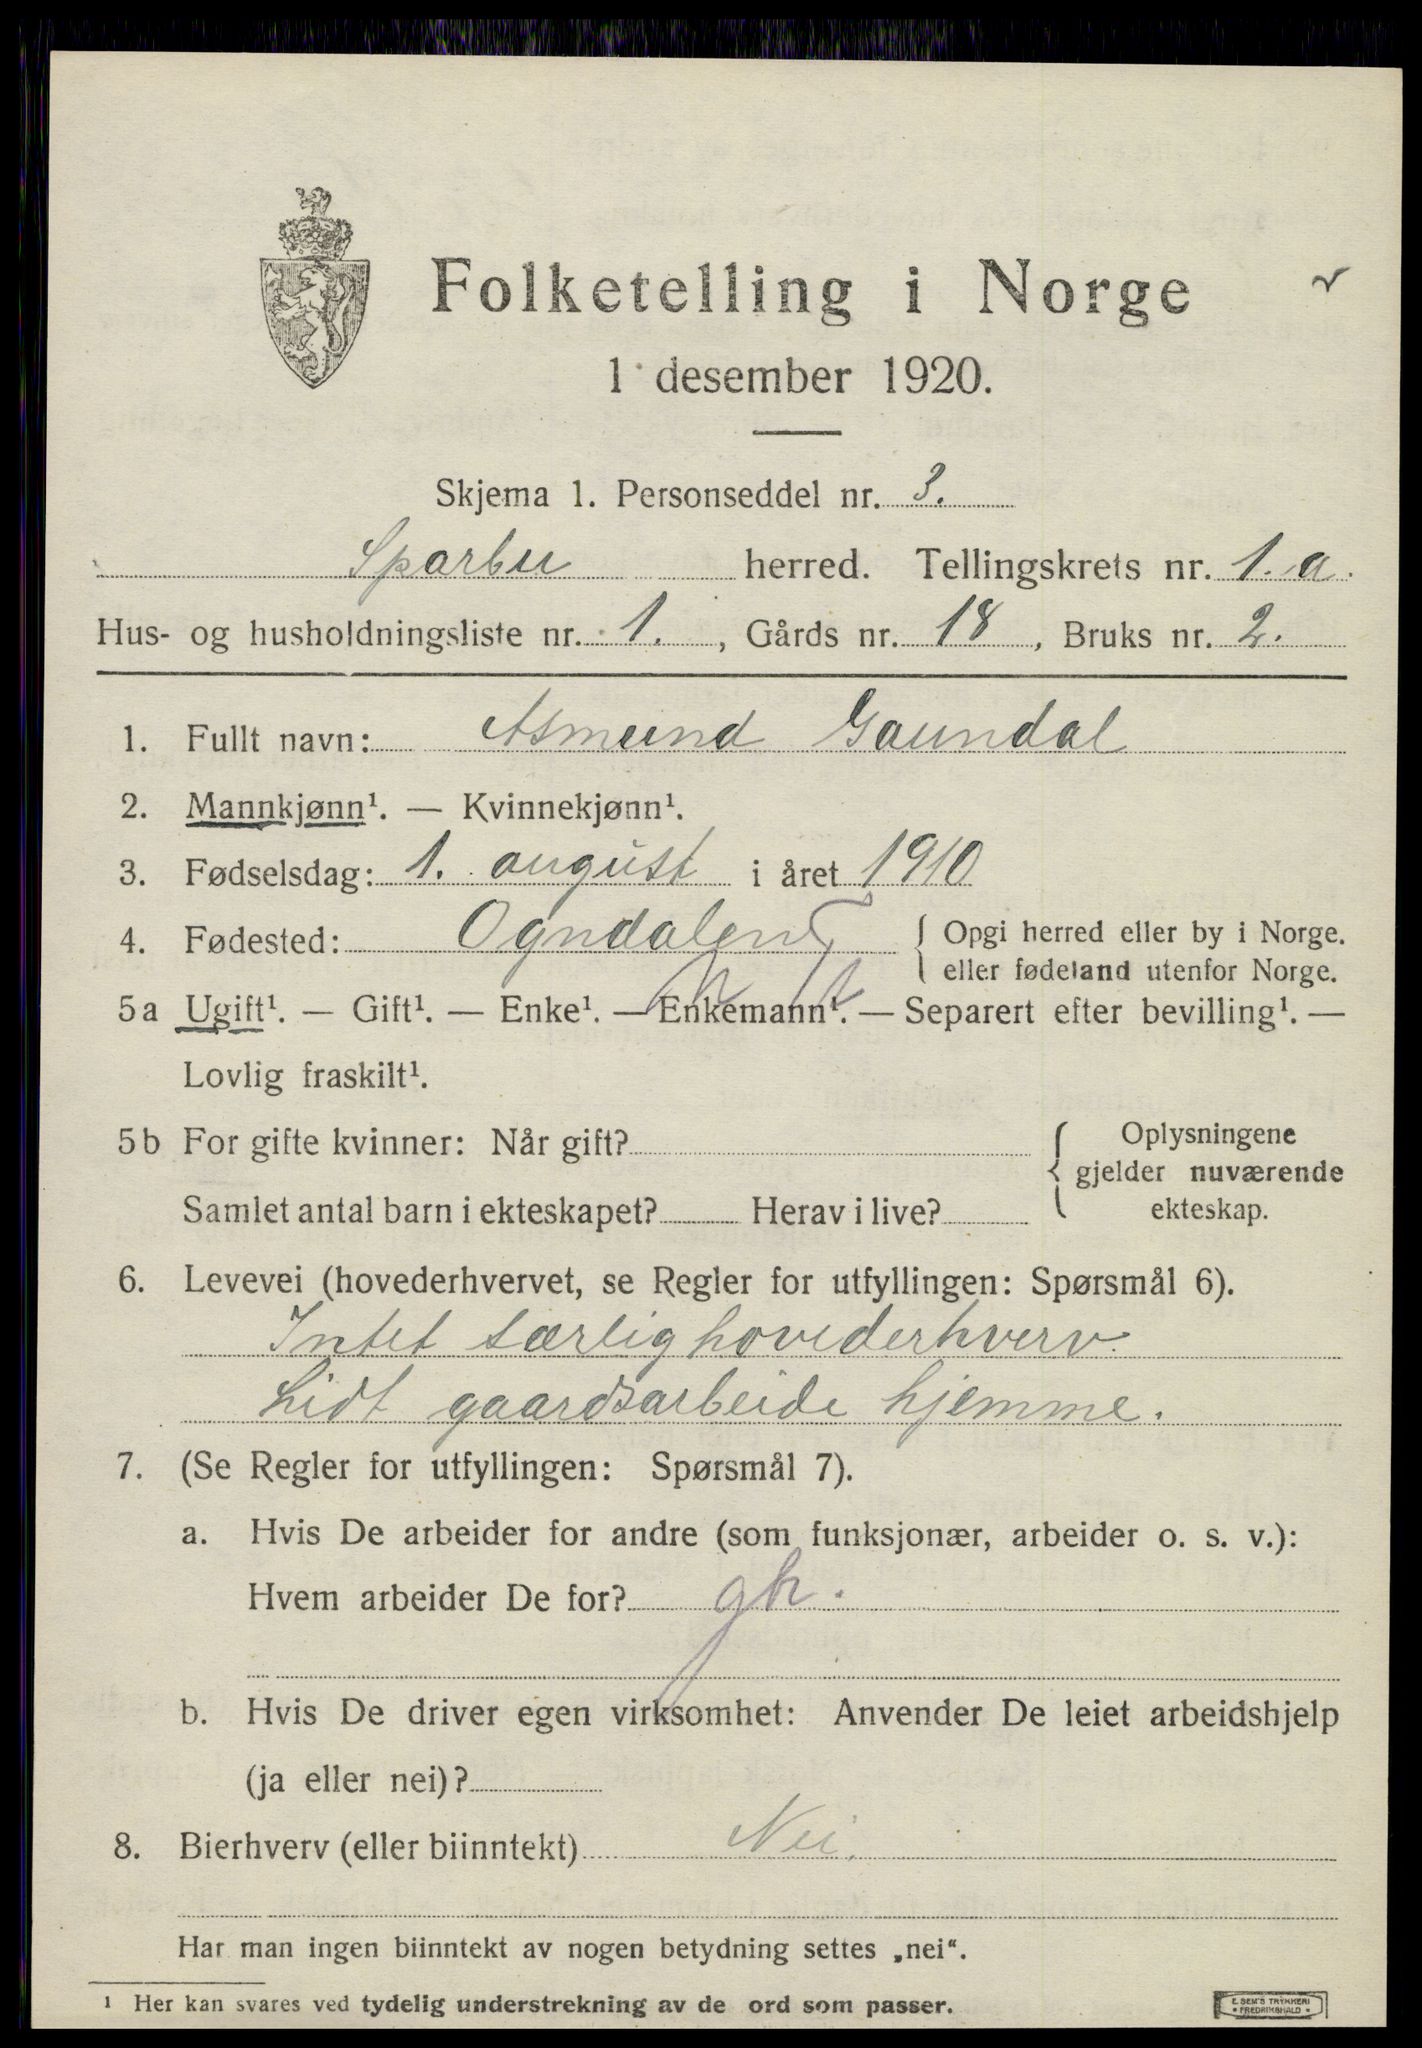 Folketelling i Norge
1 desember 1920.
Skjema 1. Personseddel nr. 3.
Sparbu herred. Tellingskrets nr. 1. a.
Hus- og husholdningsliste nr. 1., Gårds nr. 18, Bruks nr. 2.
1. Fullt navn: Asmund Gaundal
2. Mannkjønn¹. — Kvinnekjønn¹.
3. Fødselsdag: 1. august i året 1910
4. Fødested: Ogndalen { Opgi herred eller by i Norge.
eller fødeland utenfor Norge.
5a Ugift¹. — Gift¹. — Enke¹. — Enkemann¹. — Separert efter bevilling¹. —
Lovlig fraskilt¹.
5b For gifte kvinner: Når gift? { Oplysningene
gjelder nuværende
Samlet antal barn i ekteskapet? Herav i live? ekteskap.
6. Levevei (hovederhvervet, se Regler for utfyllingen: Spørsmål 6).
Intet særlig hovederhverv.
Lidt gaardsarbeide hjemme.
7. (Se Regler for utfyllingen: Spørsmål 7).
a. Hvis De arbeider for andre (som funksjonær, arbeider o. s. v.):
Hvem arbeider De for? gh.
b. Hvis De driver egen virksomhet: Anvender De leiet arbeidshjelp
(ja eller nei)?
8. Bierhverv (eller biinntekt) Nei.
Har man ingen biinntekt av nogen betydning settes „nei“.
¹ Her kan svares ved tydelig understrekning av de ord som passer.
E. SEM'S TRYKKERI
• FREDRIKSHALD •